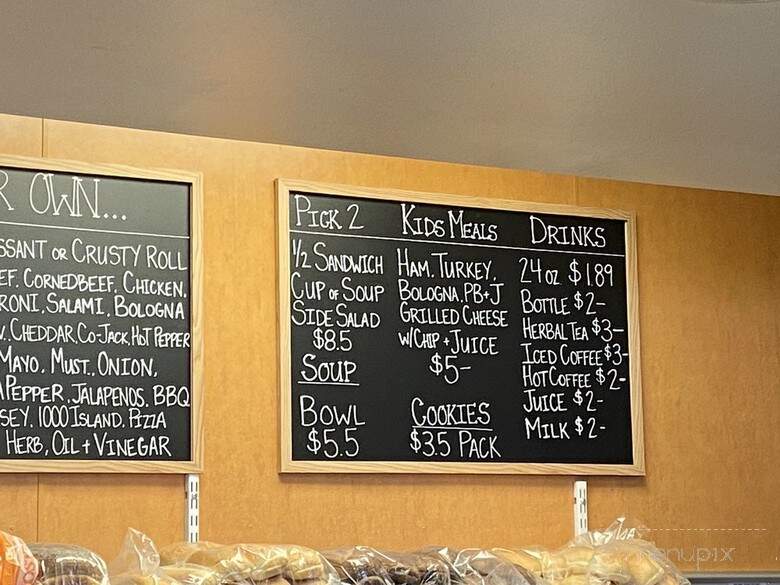 R OWN...
SSANT OR CRUSTY ROLL
EF, CORNEDBEEF, CHICKEN,
RONI, SALAMI, BOLOGNA
CHEDDAR, CO-JACK, HOT PEPPER
MAYO, MUST., ONION,
PEPPER, JALAPENOS, BBQ
SEY, 1000 ISLAND, PIZZA
HERB, OIL + VINEGAR
PICK 2
1/2 SANDWICH
CUP OF SOUP
SIDE SALAD
$8.5
SOUP
BOWL
$5.5
KIDS MEALS
HAM, TURKEY,
BOLOGNA, PB+J
GRILLED CHEESE
W/CHIP + JUICE
$5-
COOKIES
$3.5 PACK
DRINKS
24 OZ $1.89
BOTTLE $2-
HERBAL TEA $3-
ICED COFFEE $3-
HOT COFFEE $2-
JUICE $2-
MILK $2-
menupix